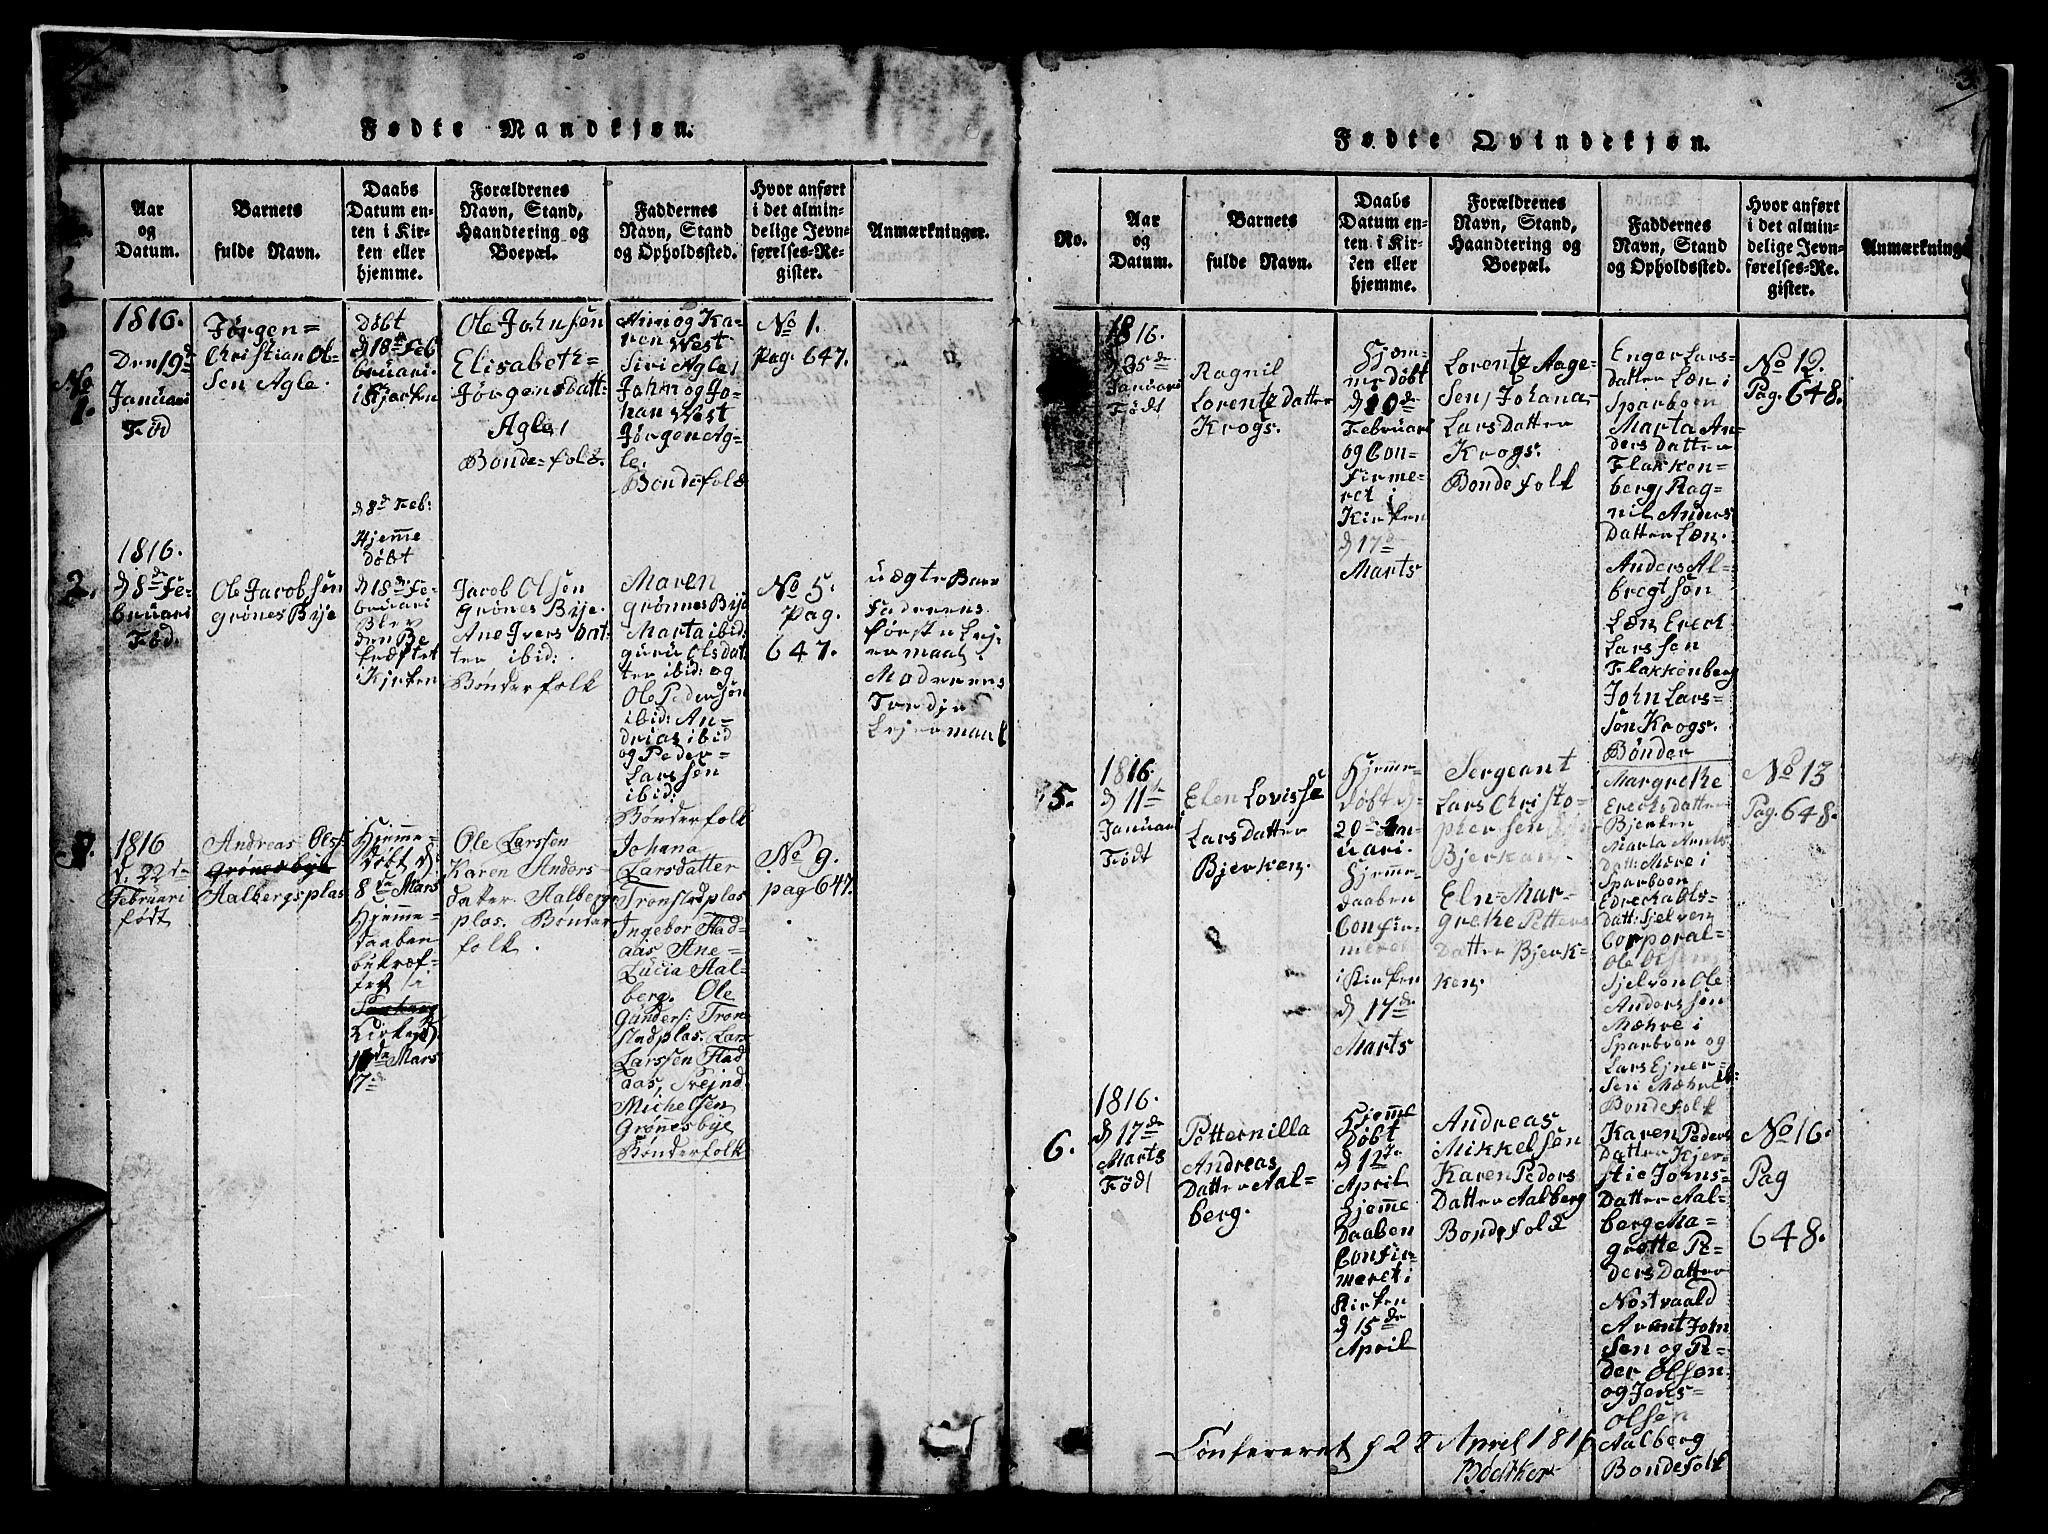 3
Fødte Mandkjøn.
Aar
og
Datum.
Barnets
fulde Navn.
Daabs
Datum en-
ten i Kir-
ken eller
hjemme.
Forældrenes
Navn, Stand,
Haandtering og
Boepæl.
Faddernes
Navn, Stand
og Opholdssted.
Hvor anført
i det almin-
delige Jevn-
førelses-Re-
gister.
Anmærkninger.
No
1.
1816.
Den 19d
Januari
Fød
Jørgen=
Christian Ol-
sen Agle.
Døbt
d 18de Feb
bruari
i Kjørken
Ole Johnsen
Elisabeth=
Jørgens Datt-
Agle,
Bonde=folk.
og Ka-
ren West
Siri Agle,
John og Jo-
han West
Jørgen Ag-
le.
Bondefolk
No 1.
Pag. 647.
2.
1816.
d 8de Fe-
bruari
Fød.
Ole Jacobsen
grønes Bye
d 8de Feb:
Hjeme
døbt
d 18de Fe-
bruari
Blev
den Be
kræftet
i Kjerken
Jacob Olsen
grønes Bye.
Ane Ivers Dat-
ter ibid:
Bønderfolk
Maren
grønnes Bye
Marta ibid:
guru Olsdat
ter ibid: og
Ole Pedersøn
ibid: An-
drias ibid
og Peder=
Larssen
ibid:
Bønderfolk
No 5.
Pag.
647.
uægte Barn
Faderens
første Lej-
ermaal.
Moderens
Tredje
Lejermaal
1816
d. 22de
Februari
født
Andreas Ols:
Grønesbye
Aalbergsplas
Hjemme-
døbt d.
8de Mars
Hjemme-
daaben
bekræf-
tet i
Kirken d.
17de Mars
17de
Ole Larssen
Karen Anders-
datter. Aalbergs
plas. Bønder
folk.
Johana
Larsdatter
Tronstadplas
Ingebor Flad-
aas, Ane=
Lucia Aal-
berg. Ole
Gunders: Tron
stadplas. Lars
Larssen Flad
aas, Trejnd.
Michelsen
Grønesbye
Bønderfolk
No 9.
pag 647.
Fødte Qvindekjøn.
No.
Aar
og
Datum.
Barnets
fulde Navn.
Daabs
Datum en-
ten i Kir-
ken eller
hjemme.
Forældrenes
Navn, Stand,
Haandtering og
Boepæl.
Faddernes
Navn, Stand
og Opholdssted.
Hvor anført
i det almin-
delige Jevn-
førelses-Re-
gister.
Anmærkning
1816.
d 25de
Januari
Født
Ragnil
Lorentz Datter
Krogs.
Hjem-
me døbt
d 10de
Februari
og Con-
firme-
ret i
Kirken
d 17de
Marts
Lorentz Aage-
Sen, Johana-
Lars Datter
Krogs.
Bonde folk
Enger Lars-
datter Læn i
Sparboen
Marta An-
ders Datter
Flakken-
berg, Rag-
nil Anders
Datter Læn.
Anders Al-
bregtsøn
Læn, Ereck
Larssen
Flakkenberg
John Lars-
søn Krogs.
Bønder
No 12.
Pag. 648.
5.
1816.
d 11te
Januari
Født
Elen Lovisse
Lars Datter
Bjerken.
Hjemme-
døbt d-
20de Jan-
uari.
Hjemme-
daaben
Confir-
meret
i Kirken
d 17de
Marts
Sergeant
Lars Christo-
phersen
Bjerkan.
Eln-Mar-
grethe Petters
Datter Bjerk-
ken.
Margrethe
Erecks datter
Bjerken
Marta Arnts
Datt: Mære i
Sparboen
Edrecka Ols-
Datt: Sjelven
Corporal-
Ole Olsen
Sjelven Ole
Anderssøn
Mæhre i
Sparboen og
Lars Ejner-
Sen Mæhre ib:
Bondefolk
No 13
Pag. 648.
6.
1816.
d 17de
Marts
Født
Petternilla
Andreas
Datter Aal=
berg.
Hjemme
Døbt
d 12te
April
Hjemme
Daaben
Confir-
meret i
Kirken
d 15de
April
Andreas
Mikkelsen
Karen Peders
Datter Aalberg
Bondefolk
Karen Peders
Datter Kjer-
stie Johns-
Datter Aal-
berg Ma-
grette Pe-
ders Datter
Nostvaald
Arent John
Sen og Pe-
der Olsen-
og Jens-
Olsen
Aalberg
Bondefolk
No 16.
Pag
648.
Confereret d 22 April 1816
Bødtker